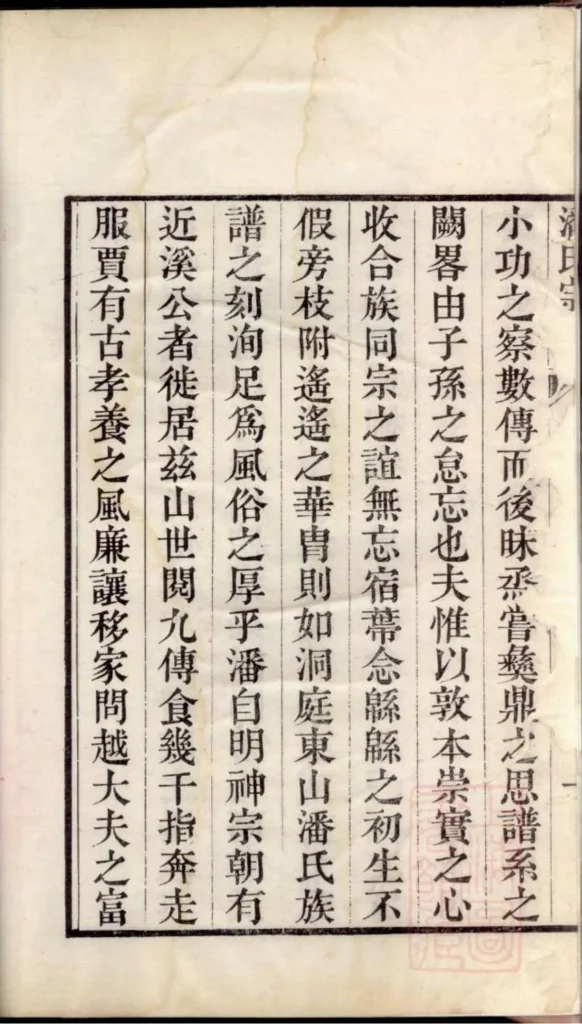 潘氏宗
小功之察數傳而後昧烝嘗彝鼎之思譜系之
闕畧由子孫之怠忘也夫惟以敦本崇實之心
收合族同宗之誼無忘宿蕚念緜緜之初生不
假旁枝附遙遙之華胄則如洞庭東山潘氏族
譜之刻洵足爲風俗之厚乎潘自明神宗朝有
近溪公者徙居兹山世閱九傳食幾千指奔走
服賈有古孝養之風廉讓移家問越大夫之富